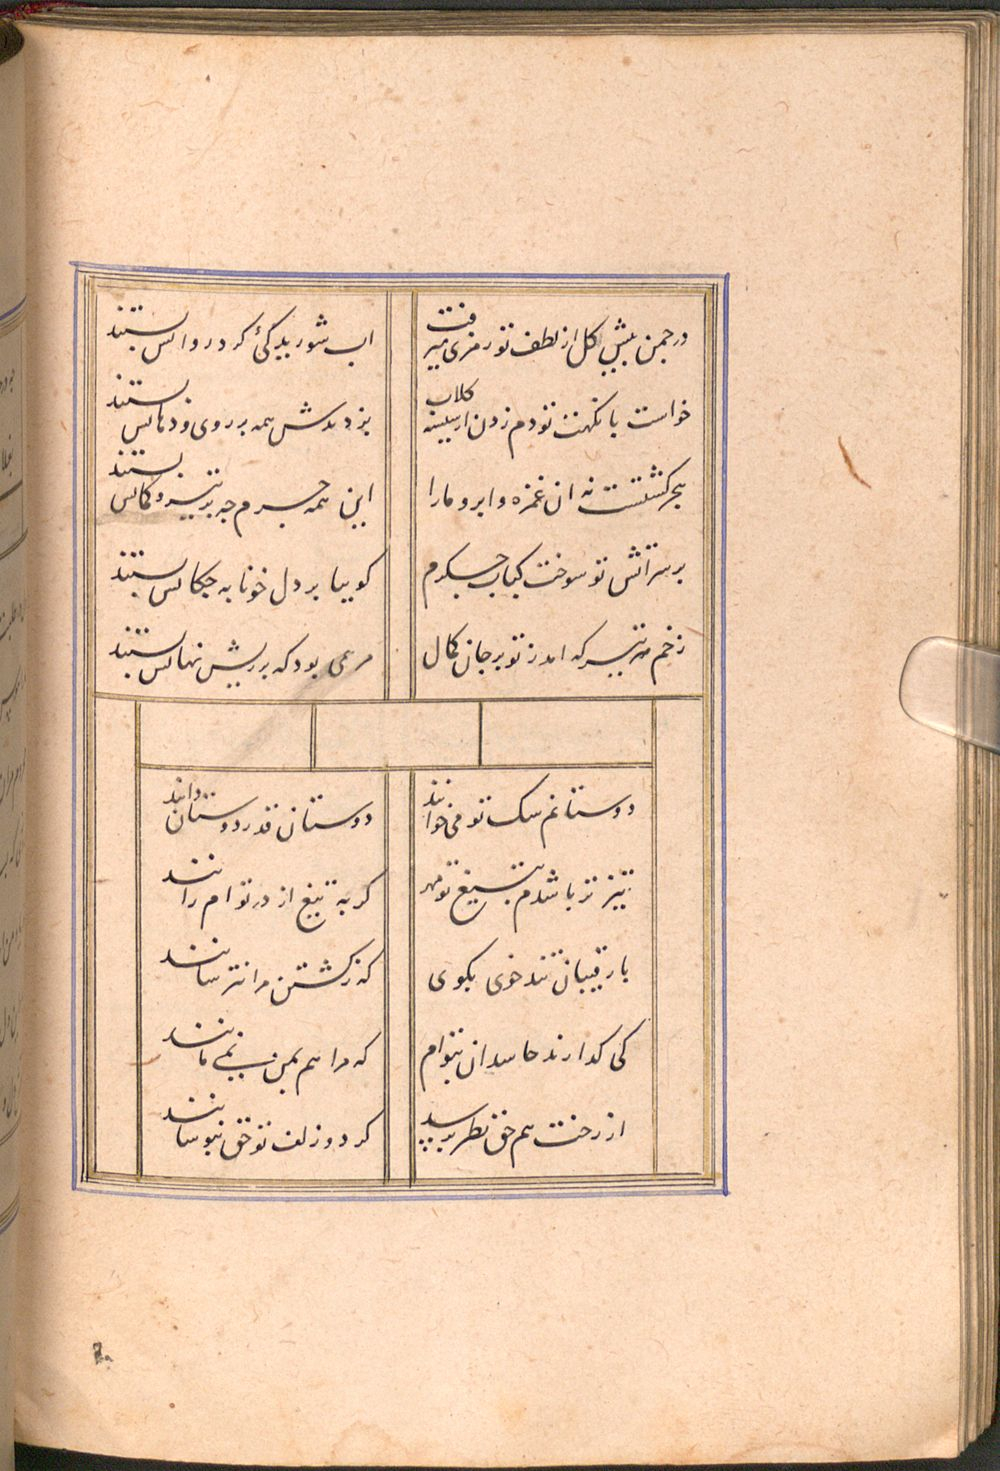 در چمن پیش گل از لطف تو رمزی میرفت
اب شوریدگئ کرد روانش بستند
خواست با نکهت تو دم زدن از سینه کلاب
بزدندش همه بر روی و دهانش بستند
بجز کشتست نه ان غمزه و ابرو ما را
این همه جرم چه بر تیر و کمانش بستند
بر سر اتش تو سوخت کباب جکرم
کوییا بر دل خونابه چکانش بستند
زخم هر تیر که امد ز تو بر جان کمال
مرهمی بود که بر ریش نهانش بستند
دوستانم سک تو می خوانند
دوستان قدر دوستان دانند
تیز تر باشدم بتیغ تو مهر
کر به تیغ از در تو ام رانند
با رقیبان تند خوی بکوی
که ز کشتن مرا نترسانند
کی کذارند حاسدان بتوام
که مرا هم بمن نمی مانند
از رخت هم حق نظر برسد
کر دو زلف تو حق بپوشانند